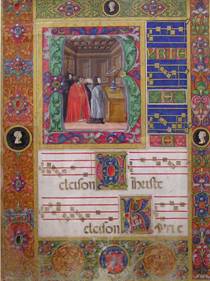 KYRIE
eleison Christe
eleison Kyrie